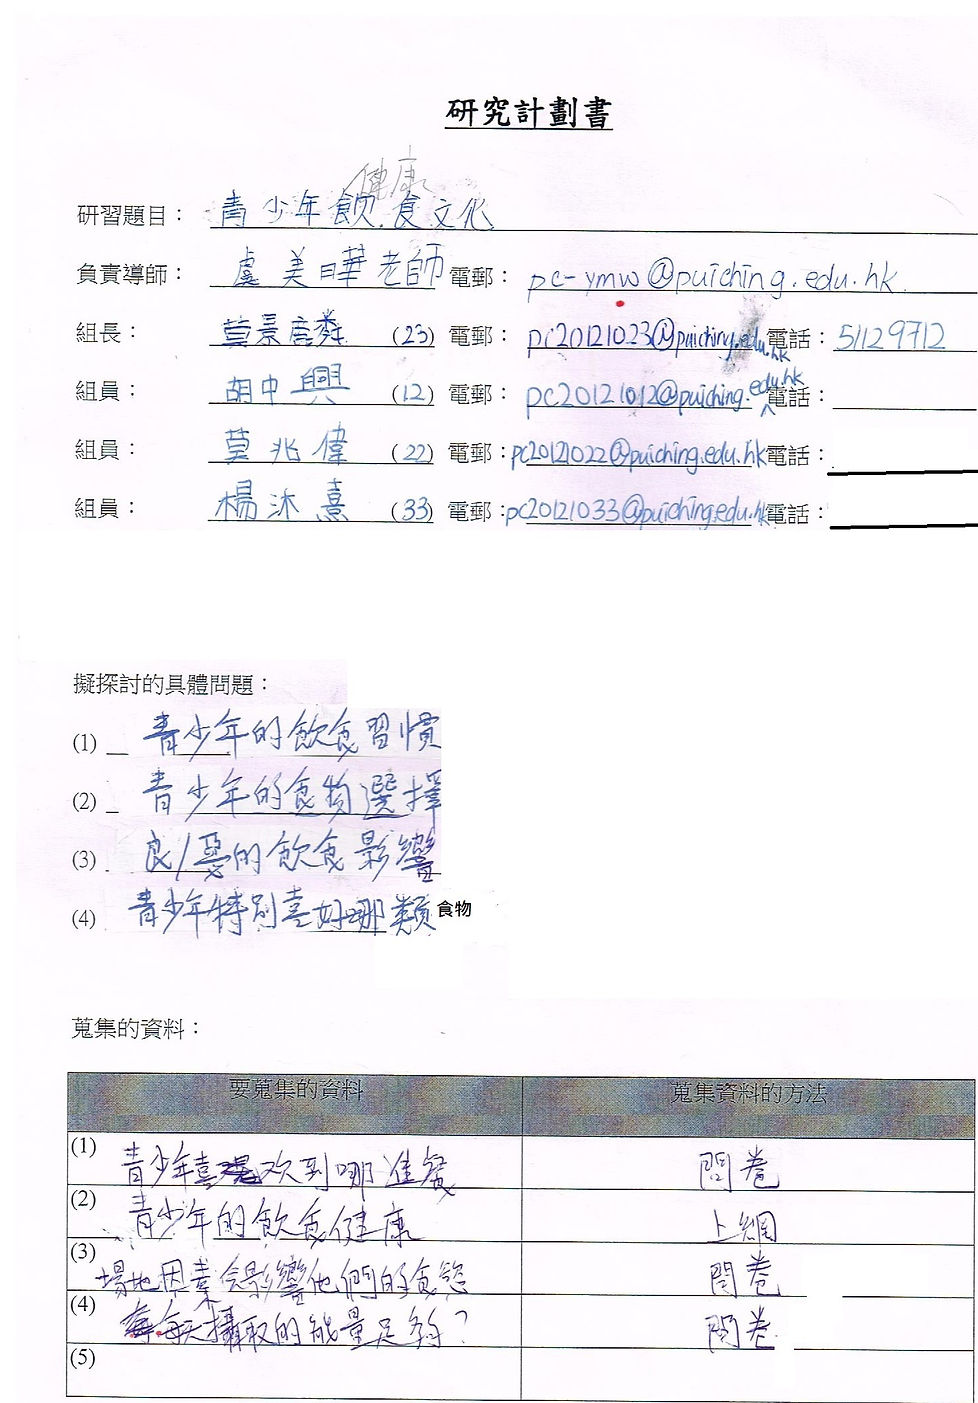 研究計劃書
健康
研習題目： 青少年飲食文化
負責導師： 虞美曄老師 電郵： pc-ymw@puiching.edu.hk
組長： 景 (23) 電郵： pc20121023@puiching.edu.hk 電話： 51129712
組員： 胡中興 (12) 電郵： pc20121012@puiching.edu.hk 電話：
組員： 莫兆偉 (22) 電郵： pc20121022@puiching.edu.hk 電話：
組員： 楊沐熹 (33) 電郵： pc20121033@puiching.edu.hk 電話：
擬探討的具體問題：
(1) 青少年的飲食習慣
(2) 青少年的食物選擇
(3) 良/惡的飲食影響
(4) 青少年特別喜好哪類食物
蒐集的資料：
要蒐集的資料 蒐集資料的方法
(1) 青少年喜歡到哪進餐 問卷
(2) 青少年的飲食健康 上網
(3) 場地因素會影響他們的食慾 問卷
(4) 每天攝取的能量足夠？ 問卷
(5)